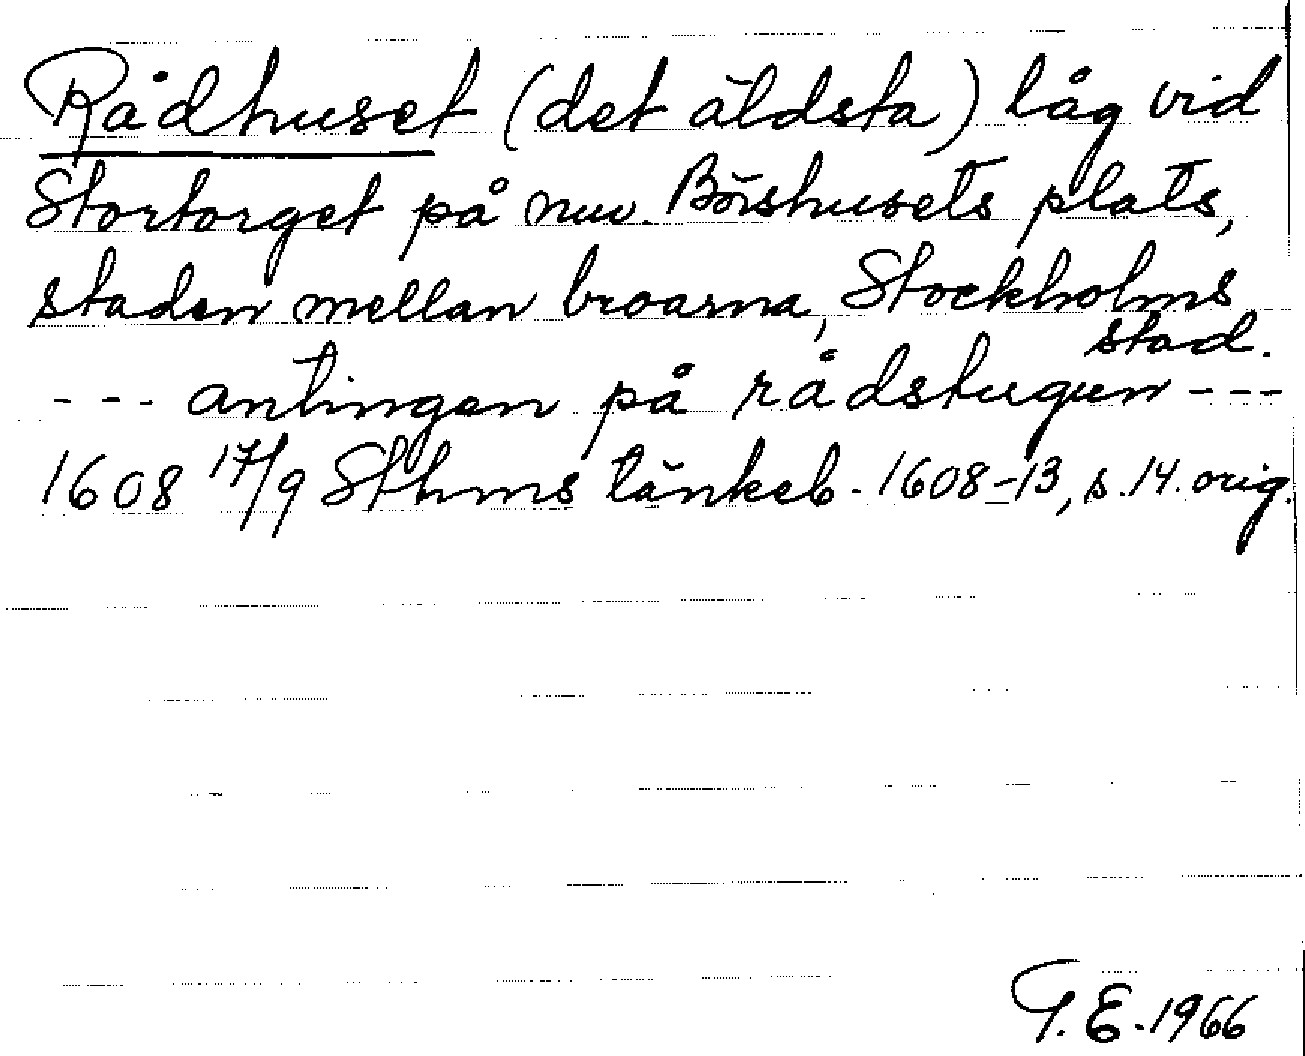 Rådhuset (det äldsta) låg vid
Stortorget på nuv. Börshusets plats,
staden mellan broarna, Stockholms
stad.
--- antingen på rådstugun ---
1608 17/9 Sthms tänkeb. 1608-13, s. 14. orig.
G. E. 1966